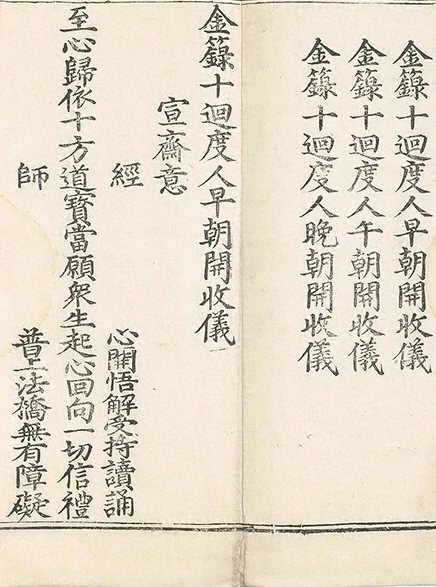 金籙十迴度人早朝開收儀
金籙十迴度人午朝開收儀
金籙十迴度人晚朝開收儀
金籙十迴度人早朝開收儀
宣齋意
經 心開悟解受持讀誦
至心歸依十方道寶當願衆生起心回向一切信禮
師 普上法橋無有障礙